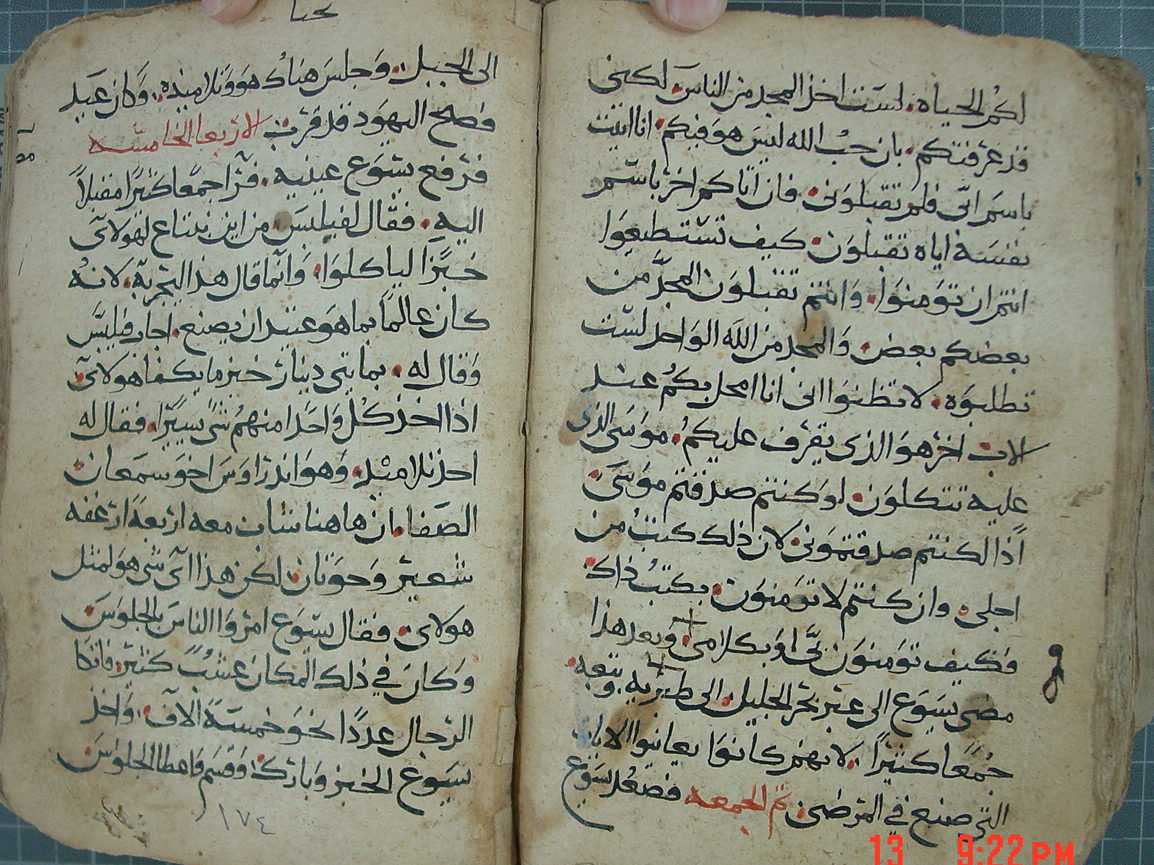 لكم الحياه. لست اخذ المجد من الناس لكنى
قد عرفتكم. بان حب الله ليس هو فيكم. انا اتيت
باسم ابى فلم تقبلونى. فان اتاكم اخر باسم
نفسه اياه تقبلون. كيف تستطيعوا
انتم ان تومنوا. وانتم تقبلون المجد من
بعضكم بعض. والمجد من الله الواحد لست
تطلبوه. لا تظنوا انى انا امحل بكم عند
الاب اخر هو الذى يقرف عليكم. موسى الذى
عليه تتكلون. لو كنتم صدقتم موسى.
اذا لكنتم صدقتمونى. لان ذلك كتب من
اجلى. وان كنتم لا تومنون. بكتب ذاك
فكيف تومنون بى او بكلامى. وبعد هذا
مضى يسوع الى عبر بحر الجليل. الى طبريه. وتبعه
جمعا كثيرا. لانهم كانوا يعاينوا الايات
التى صنع فى المرضى. تم الجمعه فصعد يسوع
يحنا
الى الجبل. وجلس هناك هو وتلاميذه. وكان عيد
فصح اليهود قد قرب. الاربعا الخامسه
فرفع يسوع عينيه. فرا جمعا كثيرا مقبلا
اليه. فقال لفيلبس. من اين نبتاع لهولاى
خبزا لياكلوا. وانما قال هذا ليجربه. لانه
كان عالما بما هو عتيد ان يصنع. اجاب فيلبس
وقال له. بمايتى دينار خبز ما يكفا هولاى
اذا اخذ كل واحدا منهم شى يسيرا. فقال له
احد تلاميذه. وهو اندراوس اخو سمعان
الصفا. ان هاهنا شاب معه اربعة ارغفه
شعير وحوتان. لكن هذا اى شى هو لمثل
هولاى. فقال يسوع امروا الناس بالجلوس
وكان فى ذلك المكان عشب كثير. فاتكا
الرجال عددا نحو خمسة الاف. واخذ
يسوع الخبز وبارك. وقسم فاعطا الجلوس
١٧٤
13 9:22 PM